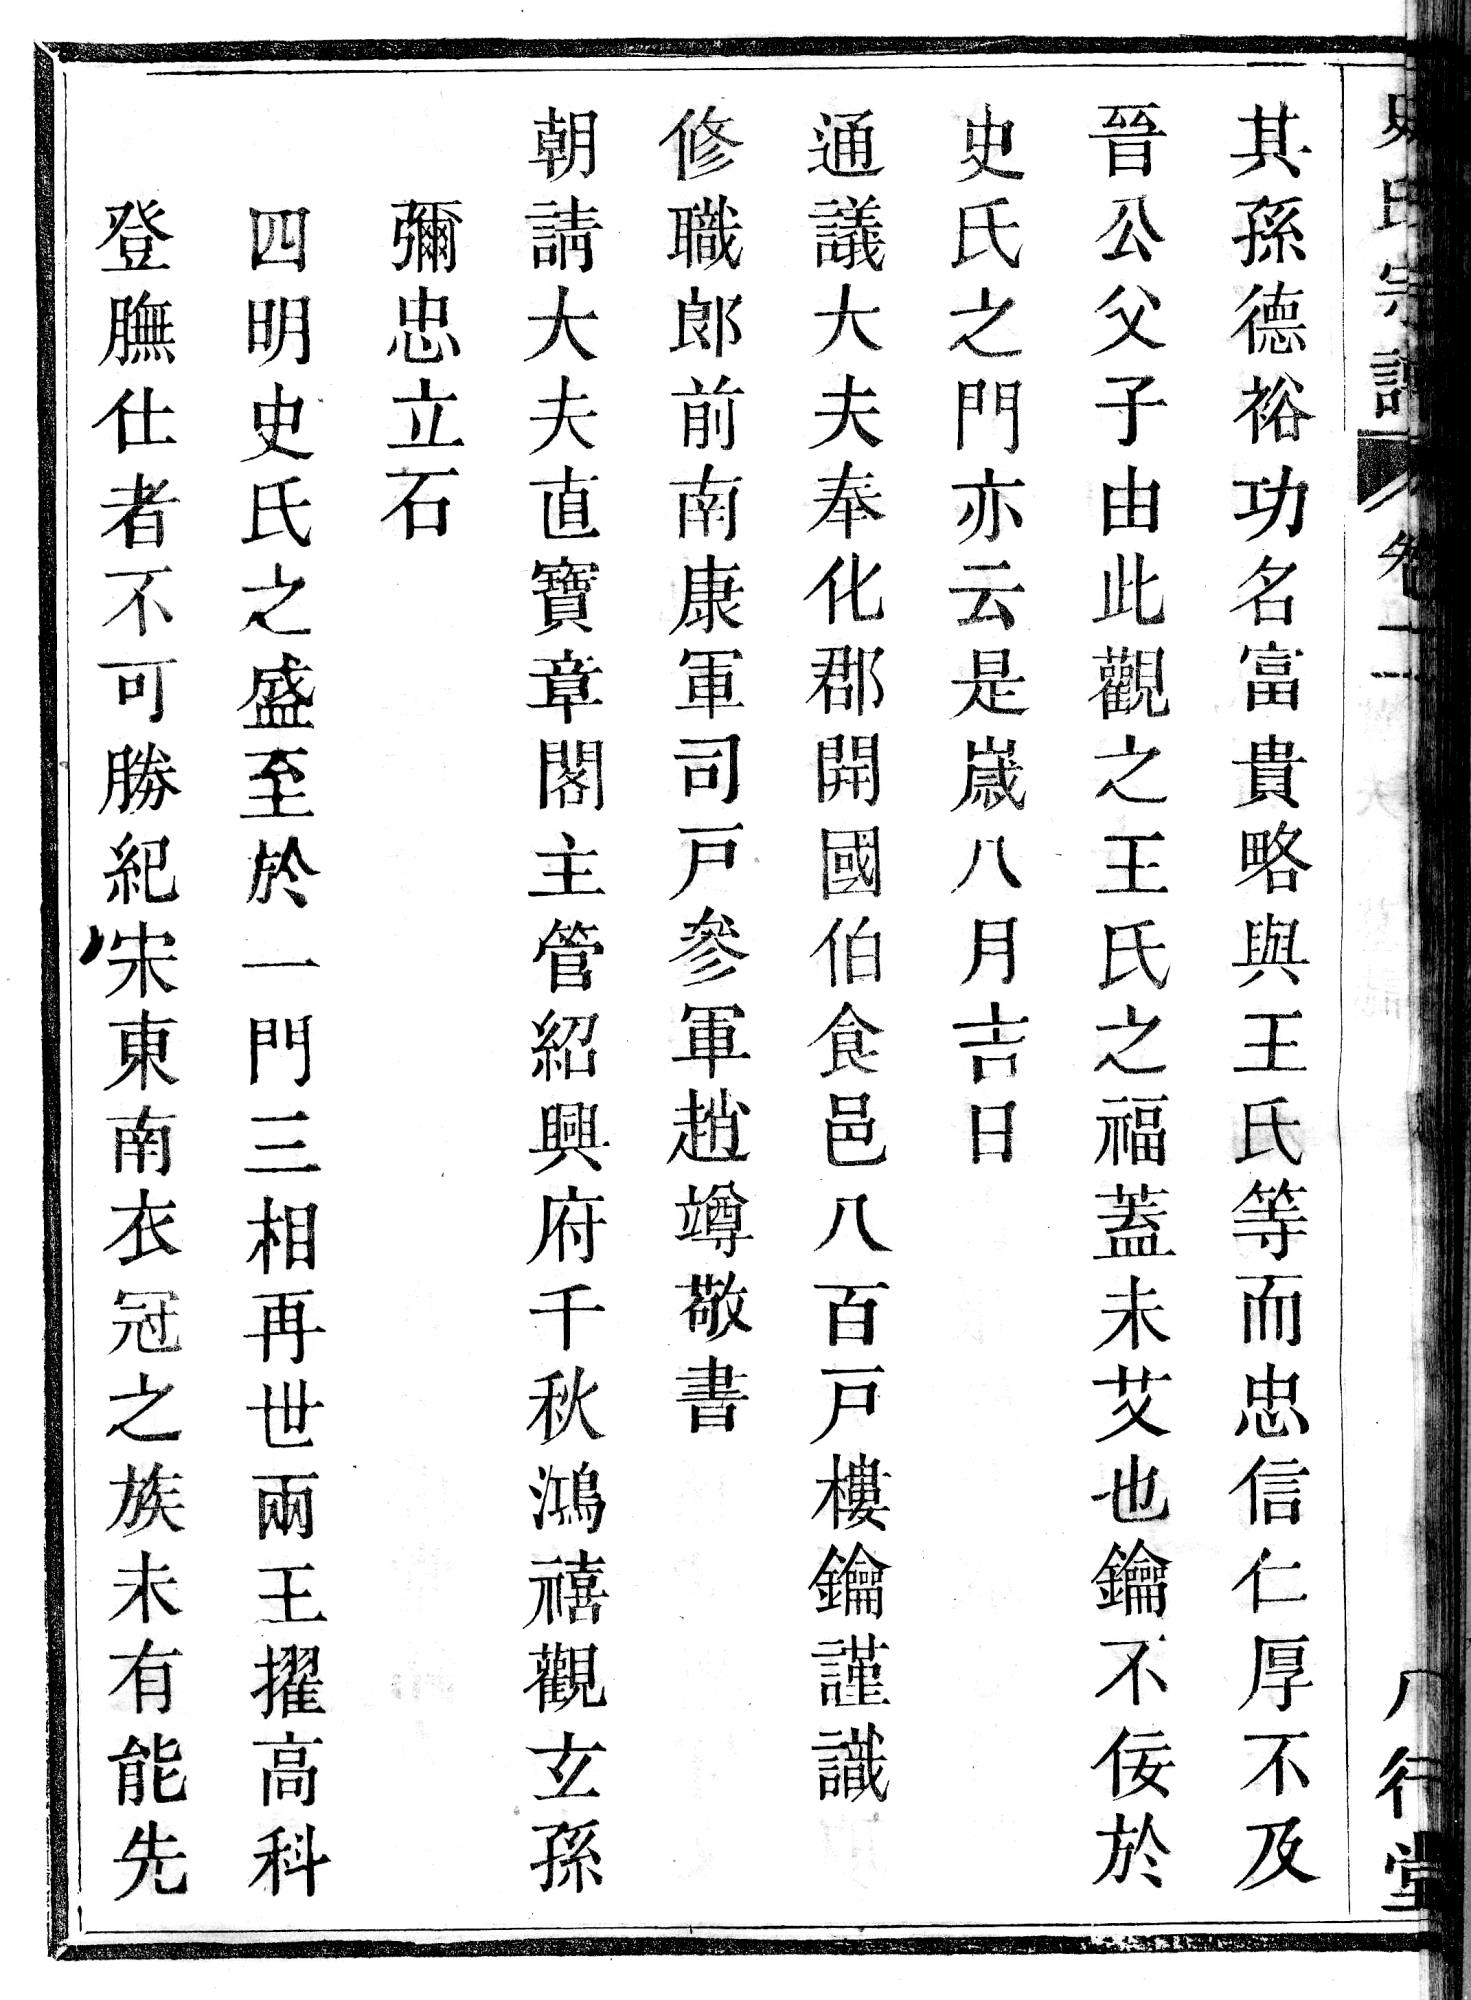 史氏宗譜 卷一 八行堂
其孫德裕功名富貴略與王氏等而忠信仁厚不及
晉公父子由此觀之王氏之福蓋未艾也鑰不佞於
史氏之門亦云是歲八月吉日
通議大夫奉化郡開國伯食邑八百戸樓鑰謹識
修職郎前南康軍司戸參軍趙竴敬書
朝請大夫直寶章閣主管紹興府千秋鴻禧觀玄孫
彌忠立石
四明史氏之盛至於一門三相再世兩王擢高科
登膴仕者不可勝紀宋東南衣冠之族未有能先